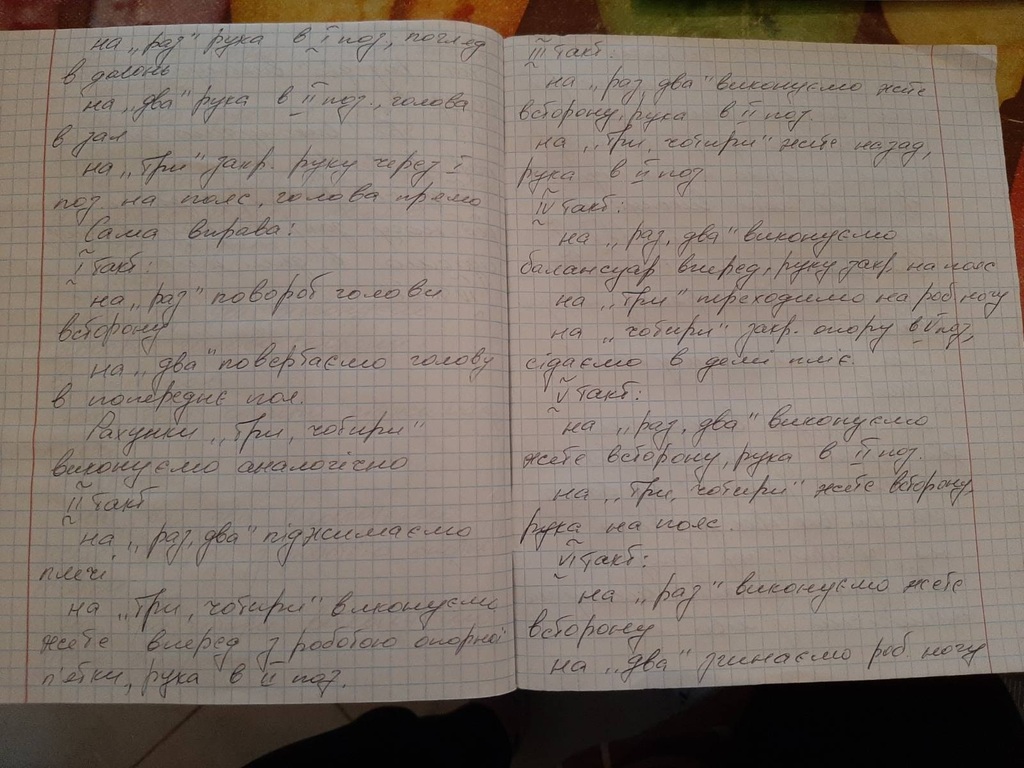 на „раз" рука в I поз, погляд
в долонь
на „два" рука в II поз., голова
в зал
на „три" закр. руку через I
поз на пояс, голова прямо
Сама вправа:
I такт:
на „раз" поворот голови
всторону
на „два" повертаємо голову
в попереднє пол.
Рахунки „три, чотири"
виконуємо аналогічно
II такт
на „раз, два" піджимаємо
плечі
на „три, чотири" виконуємо
жете вперед з роботою опорної
п'ятки, рука в II поз.
III такт.
на „раз, два" виконуємо жете
всторону, рука в II поз.
на „три, чотири" жете назад,
рука в II поз
IV такт:
на „раз, два" виконуємо
балансуар вперед, руку закр. на пояс
на „три" переходимо на роб ногу
на „чотири" закр. опору в V поз,
сідаємо в демі пліє.
V такт:
на „раз, два" виконуємо
жете всторону, рука в II поз.
на „три, чотири" жете всторону,
рука на пояс.
VI такт:
на „раз" виконуємо жете
всторону
на „два" згинаємо роб ногу